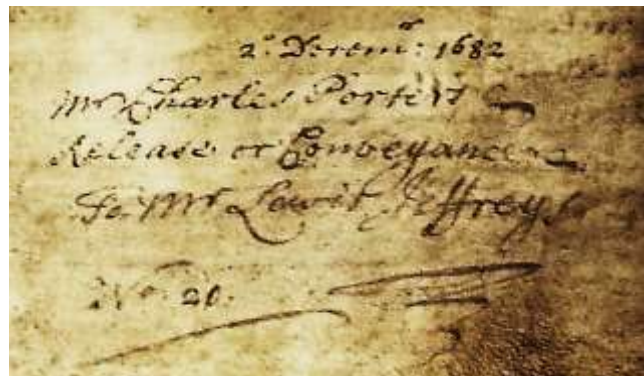 2º Decemʳ: 1682
Mr Charles Porters
Release or Conveyance
To Mr Lewis Jeffreys
No 20.